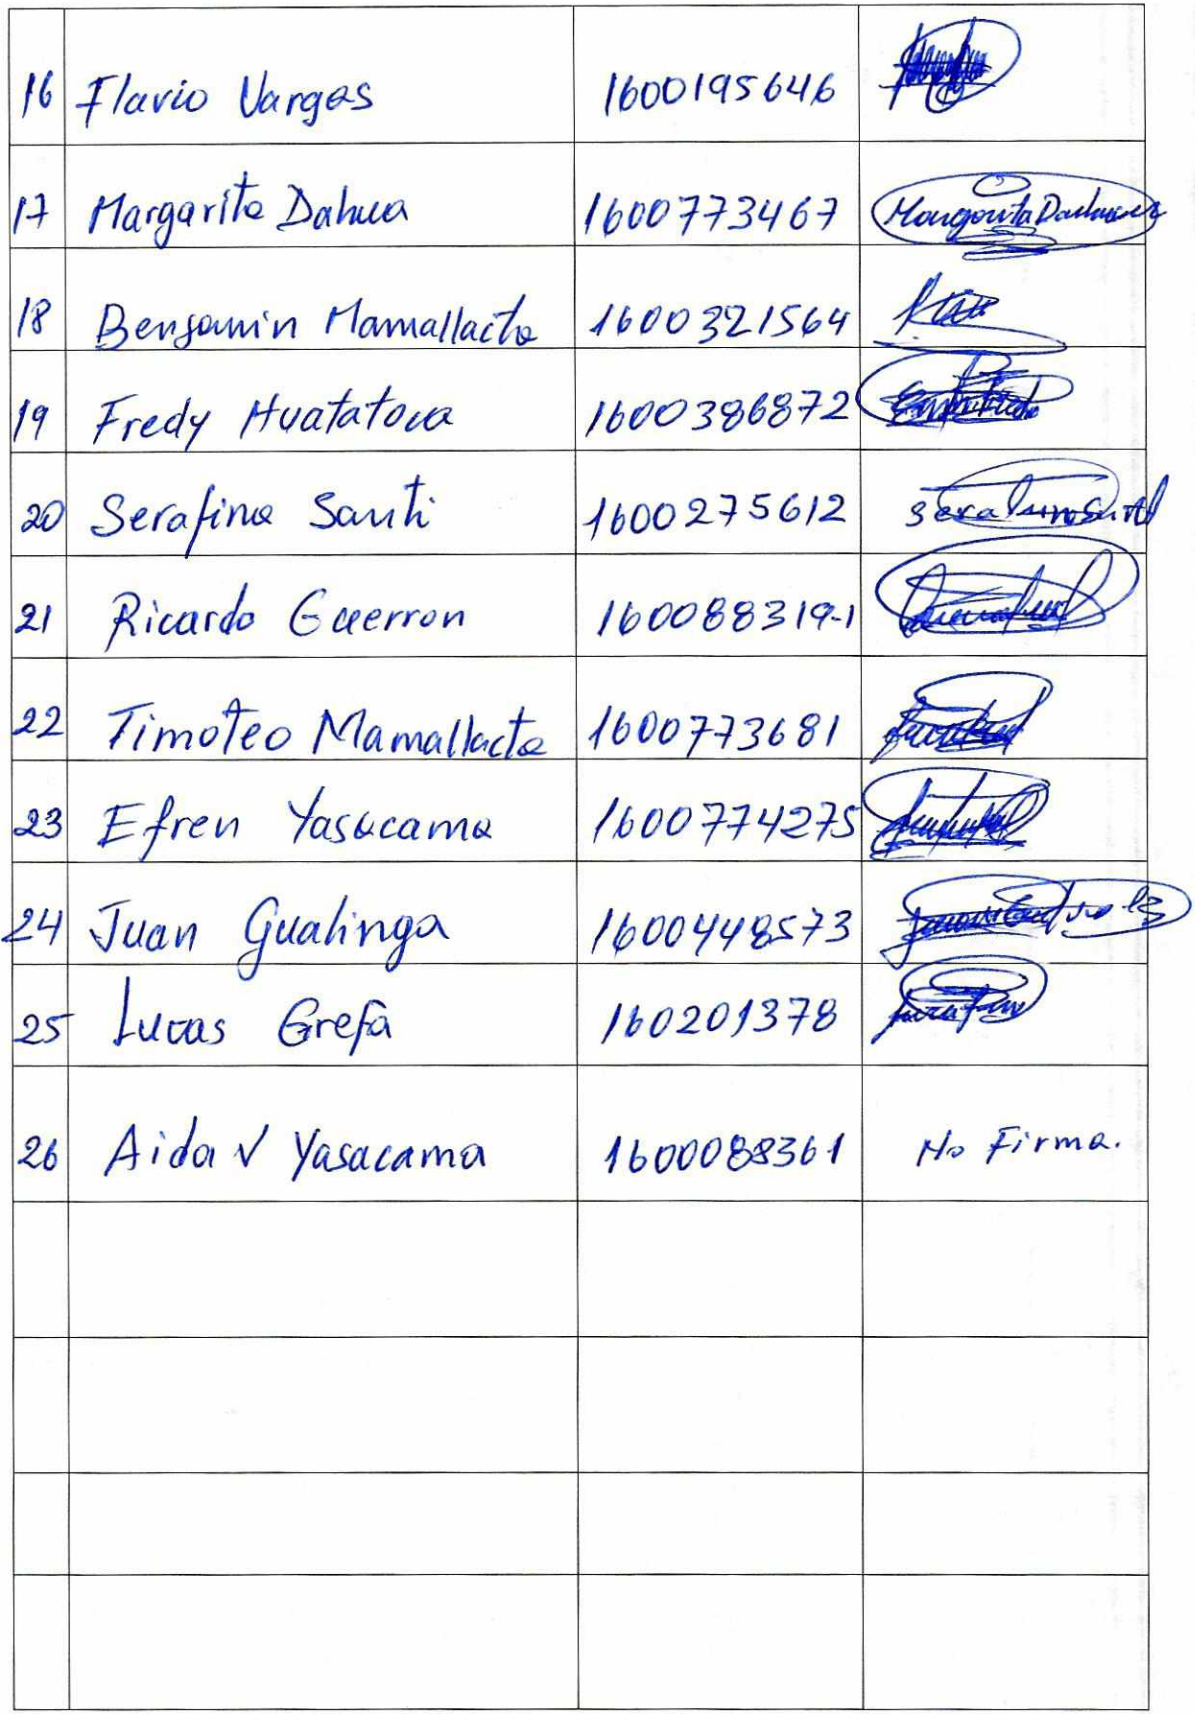 16 Flavio Vargas 1600195646
17 Margarita Dahua 1600773467 Margarita Dahua
18 Benjamin Mamallacta 1600321564
19 Fredy Huatatoca 1600386872
20 Serafina Santi 1600275612
21 Ricardo Guerron 160088319-1
22 Timoteo Mamallacta 1600773681
23 Efren Yasacama 1600774275
24 Juan Gualinga 1600448573
25 Lucas Grefa 160201378
26 Aida V Yasacama 1600088361 No Firma.